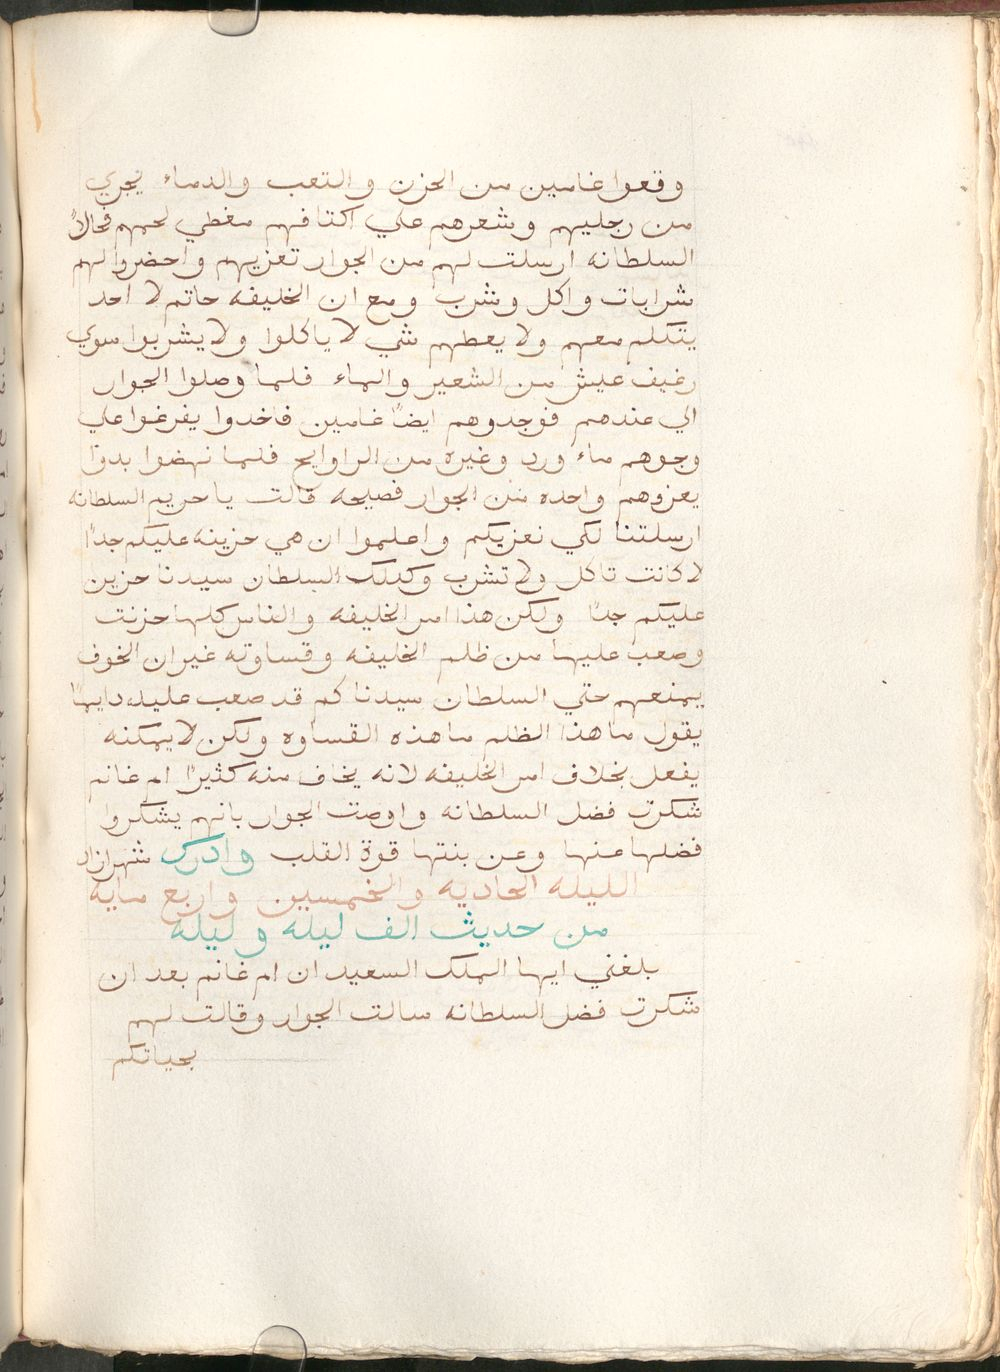 وقعوا غامين من الحزن والتعب والدماء يجري
من رجليهم وشعرهم علي اكتافهم مغطي لحمهم فحالاً
السلطانه ارسلت لهم من الجوار تعزيهم واحضروا لهم
شرابات واكل وشرب ومع ان الخليفه حاتم لا احد
يتكلم معهم ولا يعطهم شي لا ياكلوا ولا يشربوا سوي
رغيف عيش من الشعير والماء فلما وصلوا الجوار
الي عندهم فوجدوهم ايضاً غامين فاخدوا يفرغوا علي
وجوههم ماء ورد وغيره من الراوايح فلما نهضوا بدوا
يعزوهم واحده من الجوار فصيحه قالت يا حريم السلطانه
ارسلتنا لكي نعزيكم واعلموا ان هي حزينه عليكم جداً
لا كانت تاكل ولا تشرب وكدلك السلطان سيدنا حزين
عليكم جداً ولكن هذا امر الخليفه والناس كلها حزنت
وصعب عليها من ظلم الخليفه وقساوته غير ان الخوف
يمنعهم حتي السلطان سيدنا كم قد صعب عليه دايماً
يقول ما هذا الظلم ما هذه القساوه ولكن لا يمكنه
يفعل بخلاف امر الخليفه لانه يخاف منه كثيراً ام غانم
شكرت فضل السلطانه واوصت الجوار بانهم يشكروا
فضلها عنها وعن بنتها قوة القلب وادرك شهرازاد
الليله الحاديه والخمسين واربع مايه
من حديث الف ليله وليله
بلغني ايها الملك السعيد ان ام غانم بعد ان
شكرت فضل السلطانه سالت الجوار وقالت لهم
بحياتكم